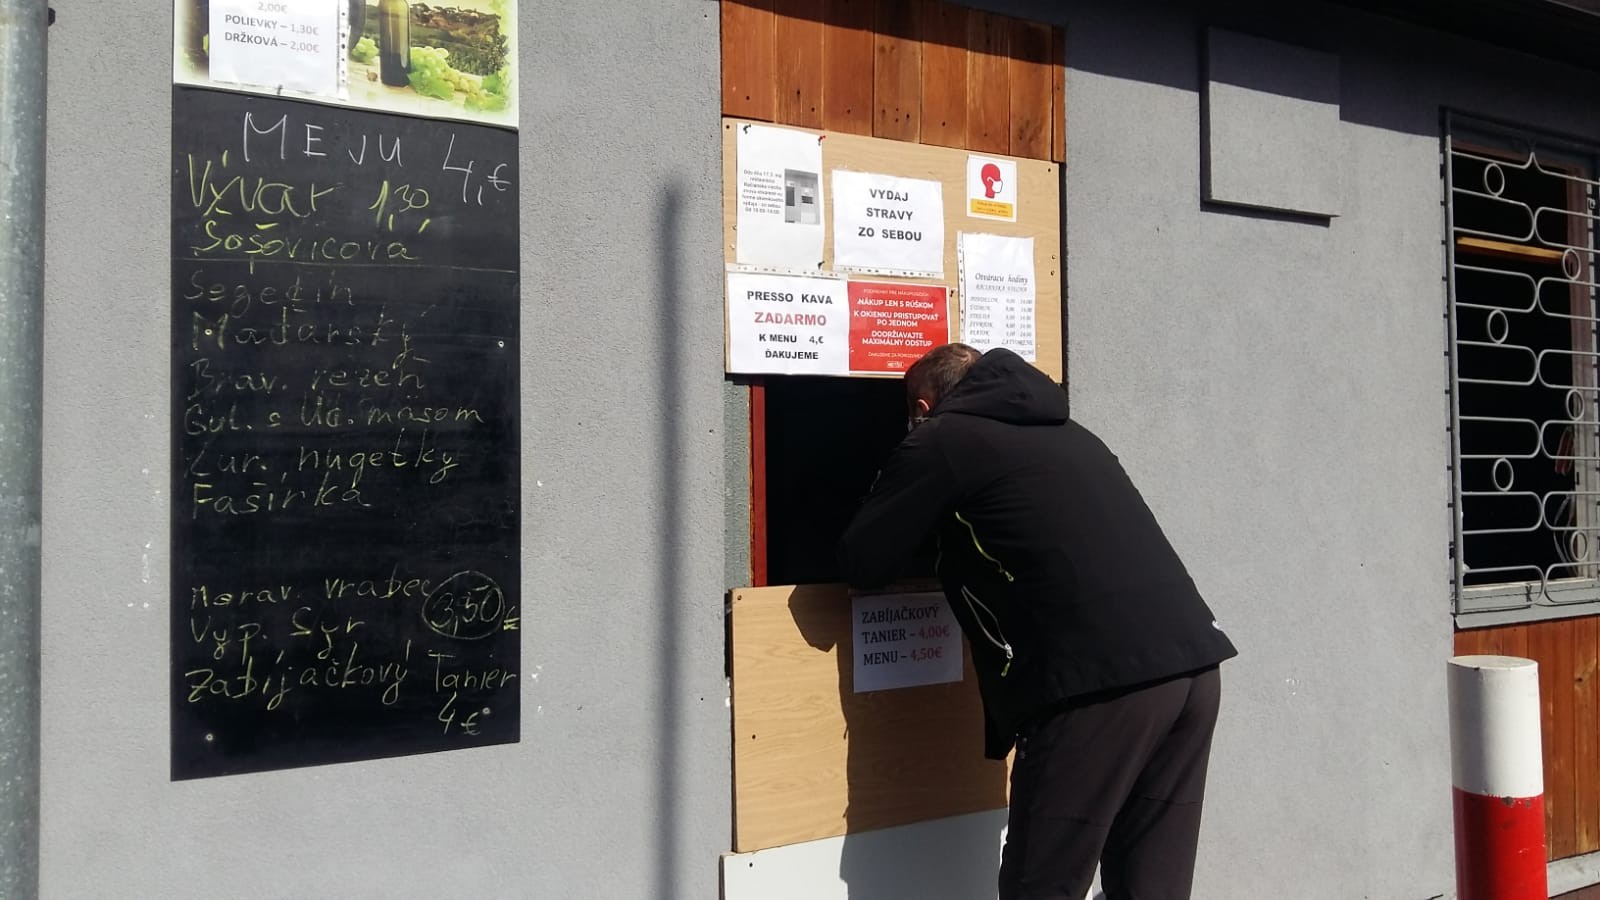 2,00€
POLIEVKY – 1,30€
DRŽKOVÁ – 2,00€
MEJU 4,€
Vývar 1,30
Šošovicová
Segedín
Maďarský
Brav. rezeň
Gul. s úd. mäsom
Kur. nugetky
Fašírka
Morav. vrabec 3,50 €
Vyp. Syr
Zabíjačkový Tanier
4 €
VÝDAJ
STRAVY
ZO SEBOU
Otváracie hodiny
PRESSO KAVA
ZADARMO
K MENU 4,€
ĎAKUJEME
NÁKUP LEN S RÚŠKOM
K OKIENKU PRISTUPOVAŤ
PO JEDNOM
DODRŽIAVAJTE
MAXIMÁLNY ODSTUP
ZABÍJAČKOVÝ
TANIER – 4,00€
MENU – 4,50€